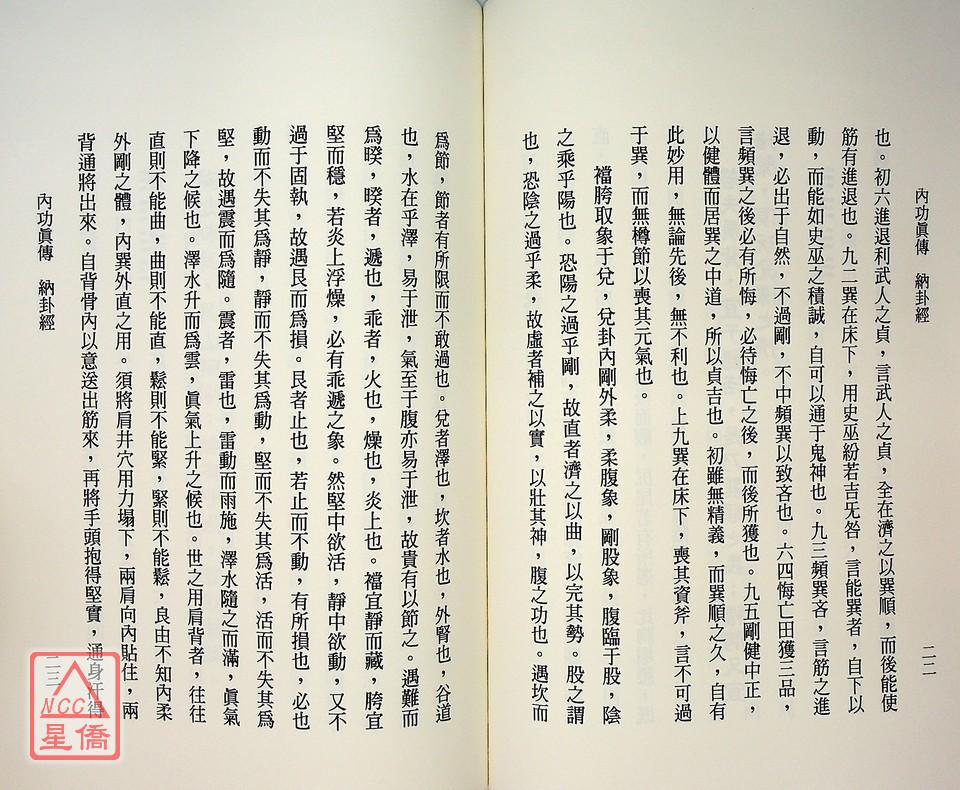 內功眞傳　納卦經
二二
也。初六進退利武人之貞，言武人之貞，全在濟之以巽順，而後能使
筋有進退也。九二巽在床下，用史巫紛若吉旡咎，言能巽者，自下以
動，而能如史巫之積誠，自可以通于鬼神也。九三頻巽吝，言筋之進
退，必出于自然，不過剛，不中頻巽以致吝也。六四悔亡田獲三品，
言頻巽之後必有所悔，必待悔亡之後，而後所獲也。九五剛健中正，
以健體而居巽之中道，所以貞吉也。初雖無精義，而巽順之久，自有
此妙用，無論先後，無不利也。上九巽在床下，喪其資斧，言不可過
于巽，而無樽節以喪其元氣也。
襠胯取象于兌，兌卦內剛外柔，柔腹象，剛股象，腹臨于股，陰
之乘乎陽也。恐陽之過乎剛，故直者濟之以曲，以完其勢。股之謂
也，恐陰之過乎柔，故虛者補之以實，以壯其神，腹之功也。遇坎而
爲節，節者有所限而不敢過也。兌者澤也，坎者水也，外腎也，谷道
也，水在乎澤，易于泄，氣至于腹亦易于泄，故貴有以節之。遇難而
爲暌，暌者，遞也，乖者，火也，燥也，炎上也。襠宜靜而藏，胯宜
堅而穩，若炎上浮燥，必有乖遞之象。然堅中欲活，靜中欲動，又不
過于固執，故遇艮而爲損。艮者止也，若止而不動，有所損也，必也
動而不失其爲靜，靜而不失其爲動，堅而不失其爲活，活而不失其爲
堅，故遇震而爲隨。震者，雷也，雷動而雨施，澤水隨之而滿，眞氣
下降之候也。澤水升而爲雲，眞氣上升之候也。世之用肩背者，往往
直則不能曲，曲則不能直，鬆則不能緊，緊則不能鬆，良由不知內柔
外剛之體，內巽外直之用。須將肩井穴用力塌下，兩肩向內貼住，兩
背通將出來。自背骨內以意送出筋來，再將手頭抱得堅實，通身汗得
內功眞傳　納卦經
二三
NCC
星僑